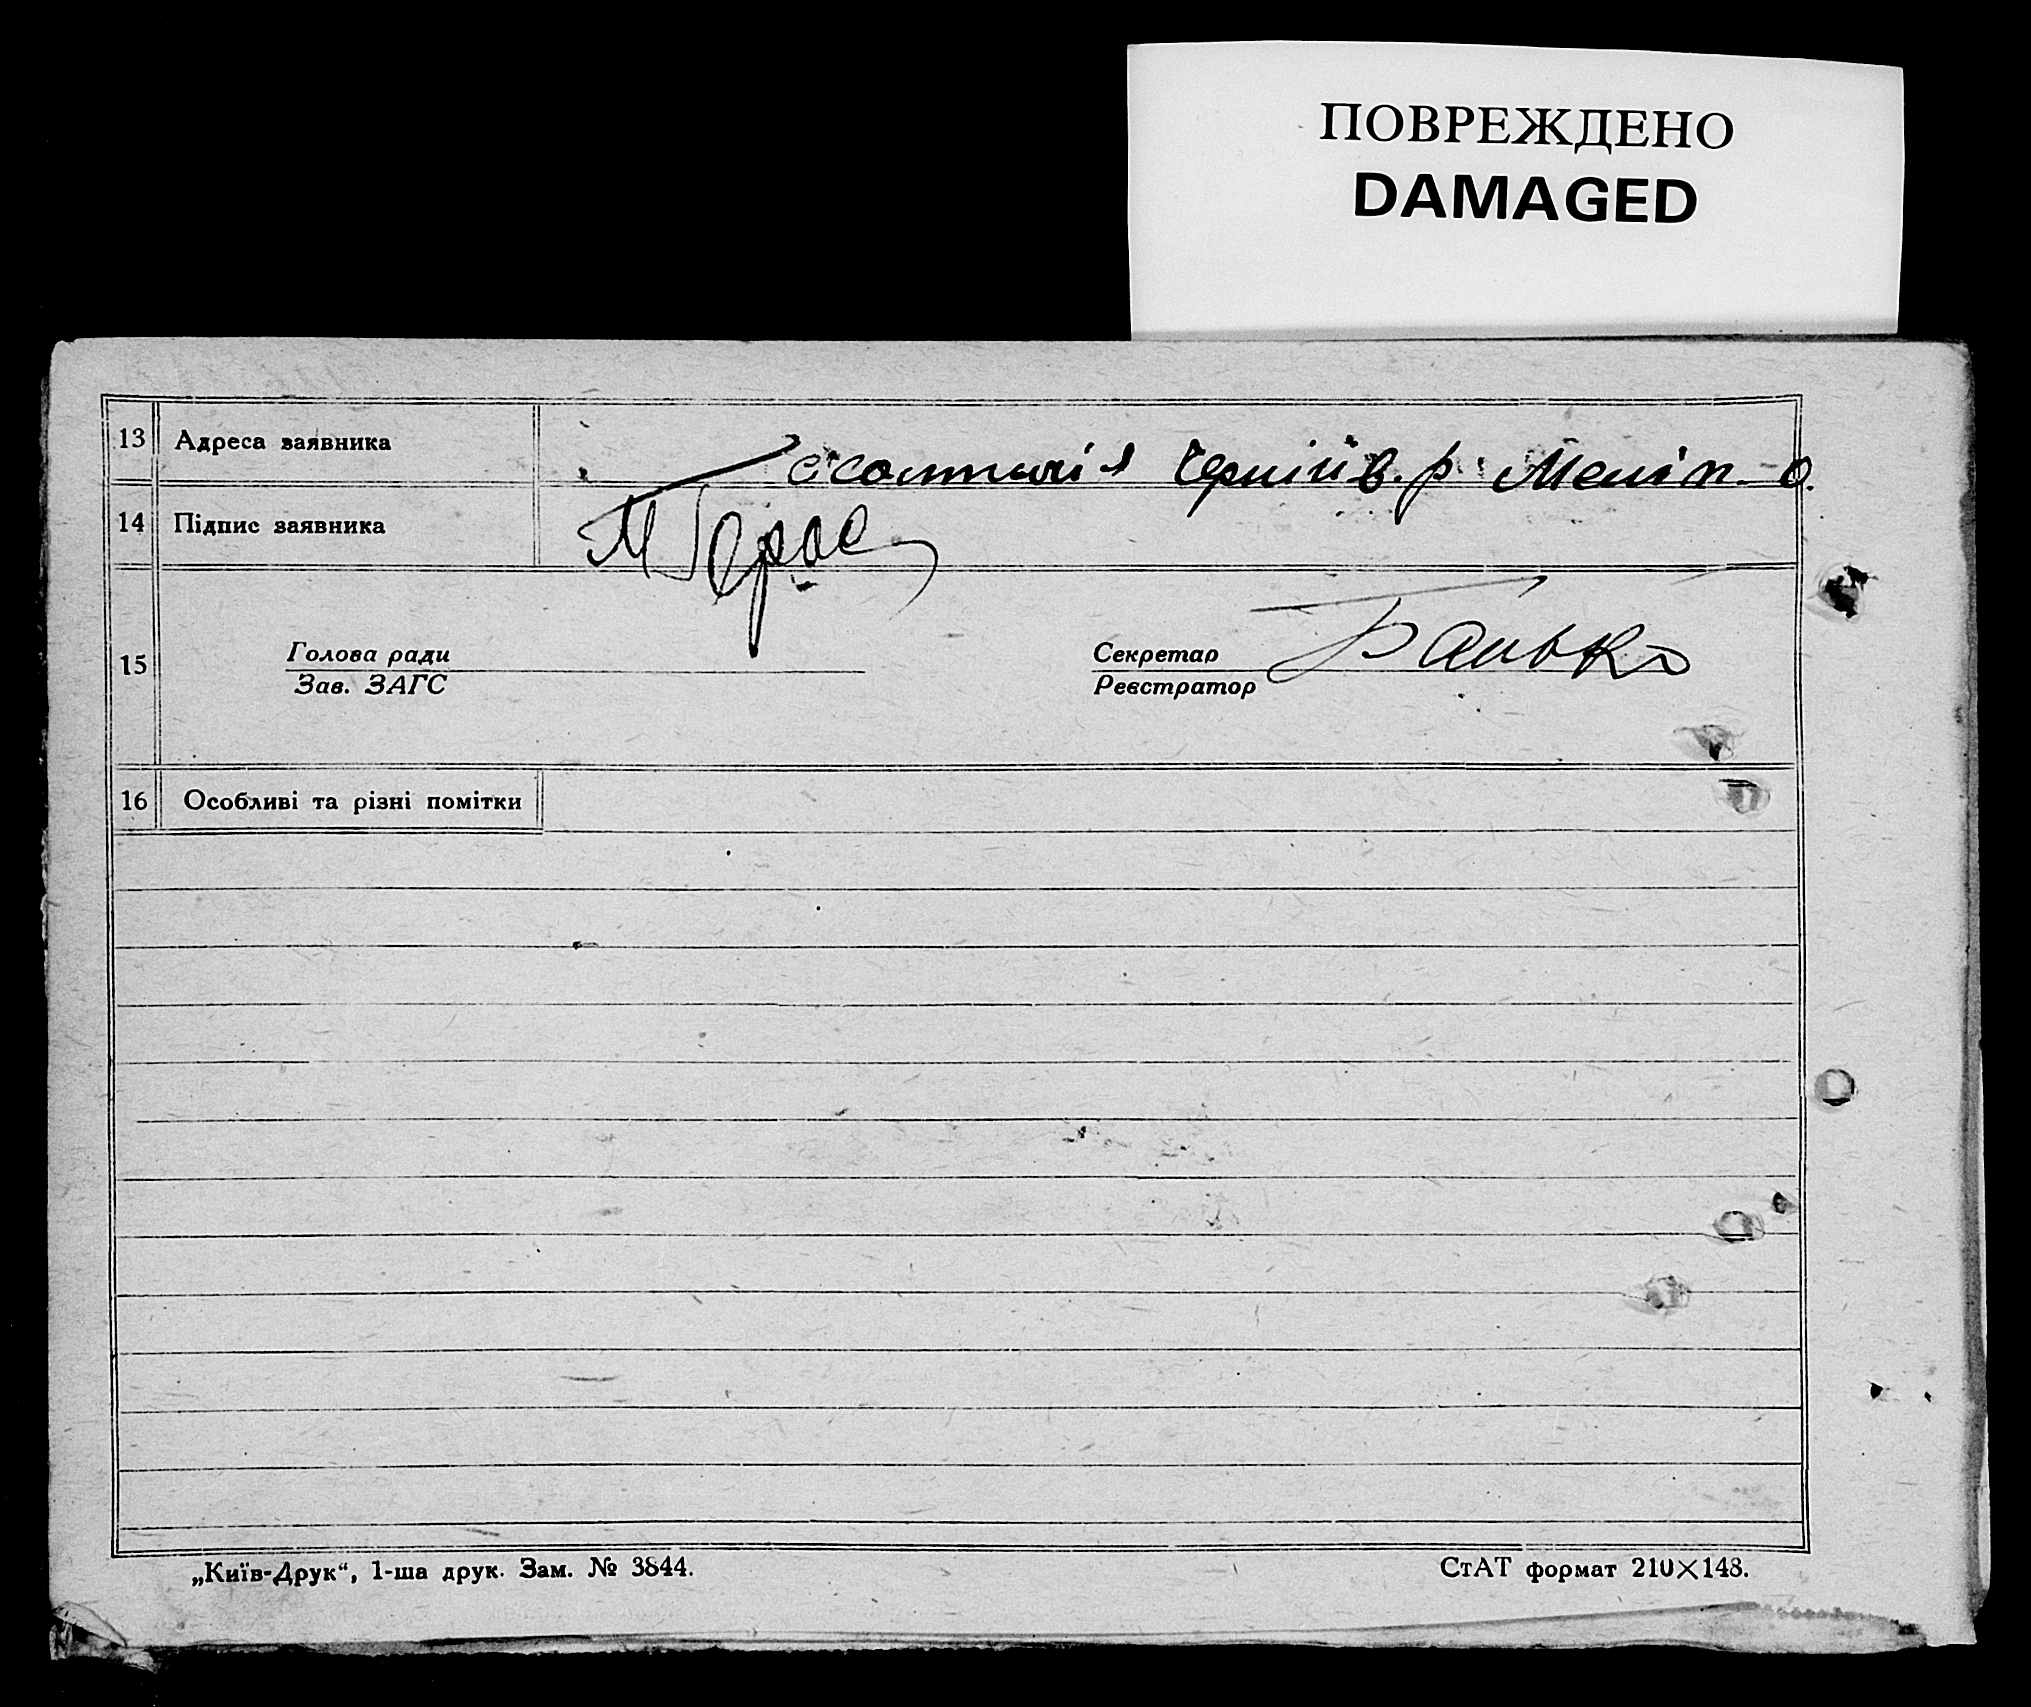 ПОВРЕЖДЕНО
DAMAGED
13 Адреса заявника р. Меліт. о.
14 Підпис заявника
15 Голова ради Секретар
Зав. ЗАГС Реєстратор
16 Особливі та різні помітки
„Київ-Друк“, 1-ша друк. Зам. № 3844.
СтАТ формат 210×148.